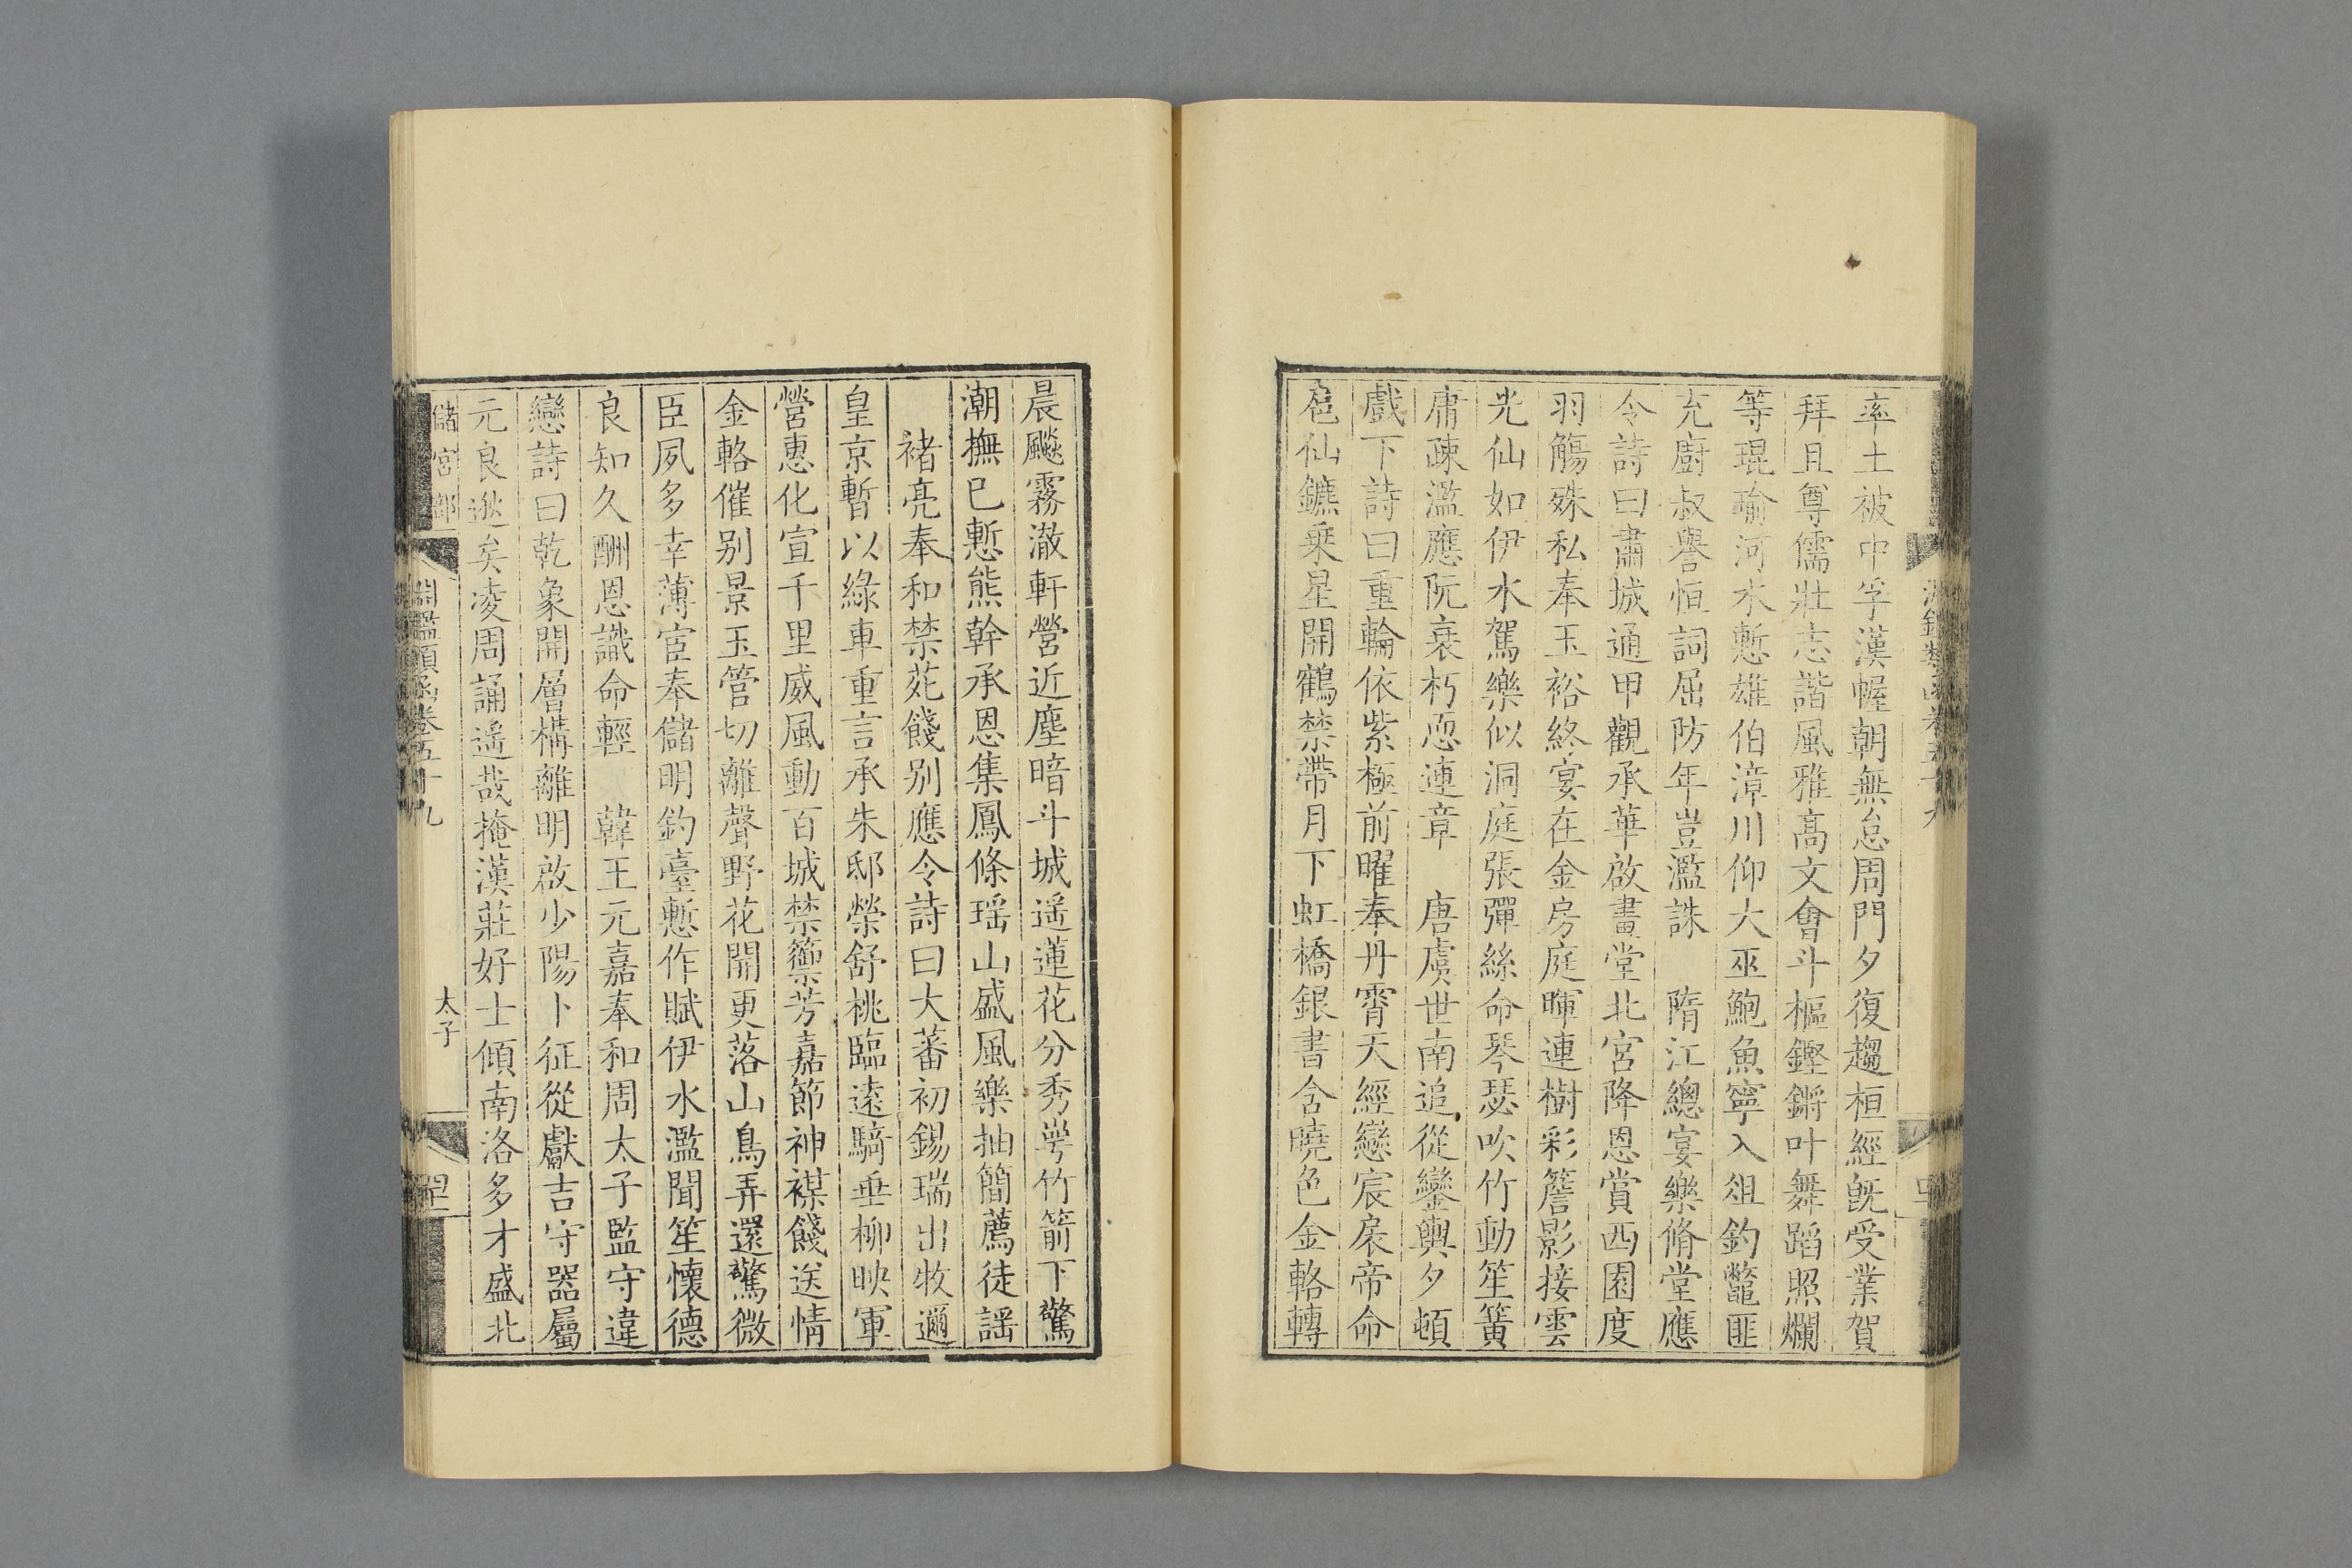 率土被中孚漢幄朝無怠周門夕復趨桓經旣受業賀
拜且尊儒壯志諧風雅高文會斗樞鏗鏘叶舞蹈照爛
等琨瑜河水慙雄伯漳川仰大巫鮑魚寧入俎釣鼈匪
充廚叔譽恒詞屈防年豈濫誅　隋江總宴樂脩堂應
令詩曰肅城通甲觀承華啟畫堂北宮降恩賞西園度
羽觴殊私奉玉裕終宴在金房庭暉連樹彩簷影接雲
光仙如伊水駕樂似洞庭張彈絲命琴瑟吹竹動笙簧
庸疎濫應阮衰朽恧連章　唐虞世南追從鑾輿夕頓
戲下詩曰重輪依紫極前曜奉丹霄天經戀宸扆帝命
扈仙鑣乗星開鶴禁帶月下虹橋銀書含曉色金輅轉
晨飈霧澈軒營近塵暗斗城遥蓮花分秀萼竹箭下驚
潮撫已慙熊幹承恩集鳳條瑶山盛風樂抽簡薦徒謡
褚亮奉和禁苑餞别應令詩曰大蕃初錫瑞出牧邇
皇京暫以綠車重言承朱邸榮舒桃臨遠騎垂柳映軍
營惠化宣千里威風動百城禁籞芳嘉節神襟餞送情
金輅催别景玉管切離聲野花開更落山鳥弄還驚微
臣夙多幸薄宦奉儲明釣臺慙作賦伊水濫聞笙懷德
良知久酬恩識命輕　韓王元嘉奉和周太子監守違
戀詩曰乾象開層構離明啟少陽卜征從獻吉守器屬
元良逖矣凌周誦遥哉掩漢莊好士傾南洛多才盛北
儲宮部
淵鑑類函卷五十九
太子